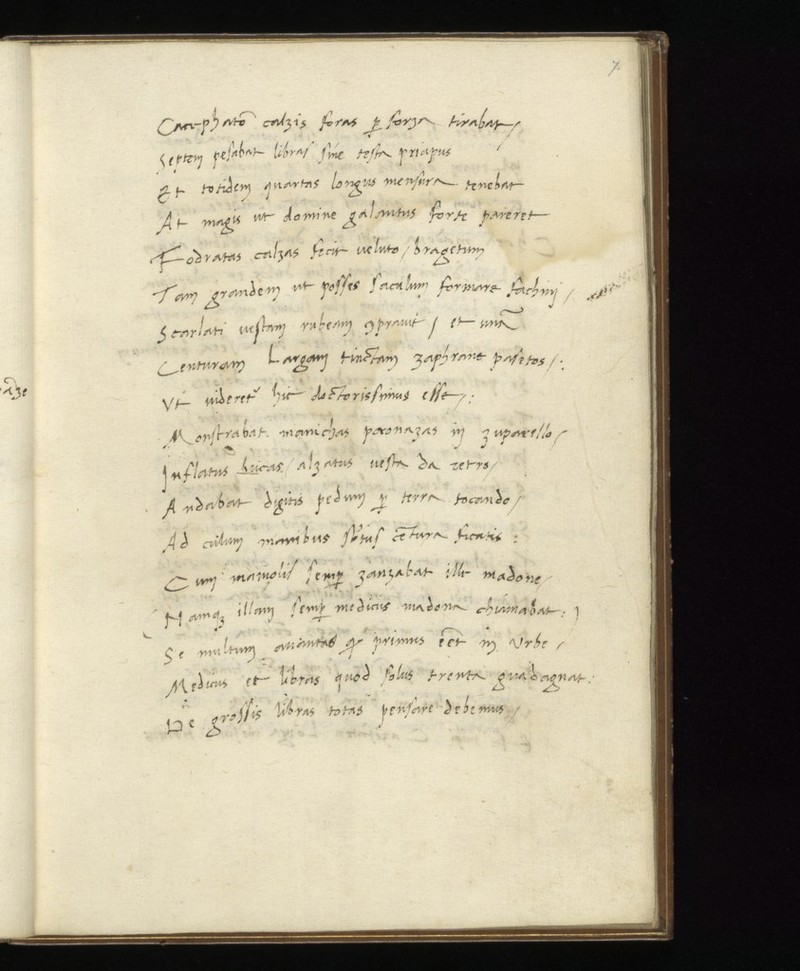 7.
Cacephatõ calzis foras p̱ forza tirabat /
Septem pesabat libras sine testa priapus
Et totidem quartas longus mensura tenebat
At magis ut domine galantus forte pareret
Fodratas calzas fecit veluto / bragetum
Tam grandem ut posses saculum formare fachinj /
Scarlati vestam rubeam ꝯprauit / et unã
Centuram Largam tinctam zaphrane pasetos /:
Ut videret᷑ hic doctorissimus esse /:
Monstrabat manichas paonazas in zuparello /
Inflatus bucas / alzatus vesta da retro /
Andabat digitis pedum p̱ terra tocando /
Ad culum manibus centura ficatis :
Cum semp̱ zanzabat ille madone /
Namqꝫ illam semp̱ medicus madona chiamabat : )
Se multum auantas primus eẽt in Urbe /
Medicus et libras quod solus trenta guadagnat :
De grossis libras totas pensare debemus /